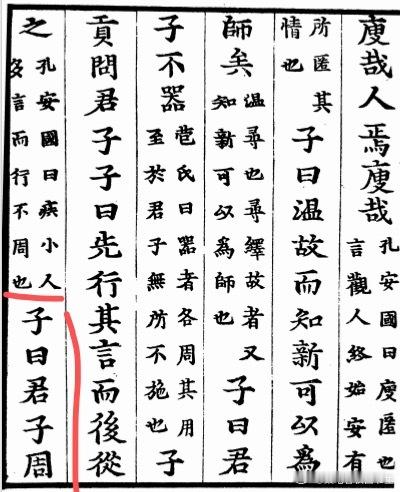 廋哉人焉廋哉 孔安國曰廋匿也言觀人終始安有
所匿其情也 子曰温故而知新可以爲
師矣 温尋也尋繹故者又知新可以爲師也 子曰君
子不器 苞氏曰器者各周其用至於君子無所不施也 子
貢問君子子曰先行其言而後從
之 孔安國曰疾小人多言而行不周也 子曰君子周